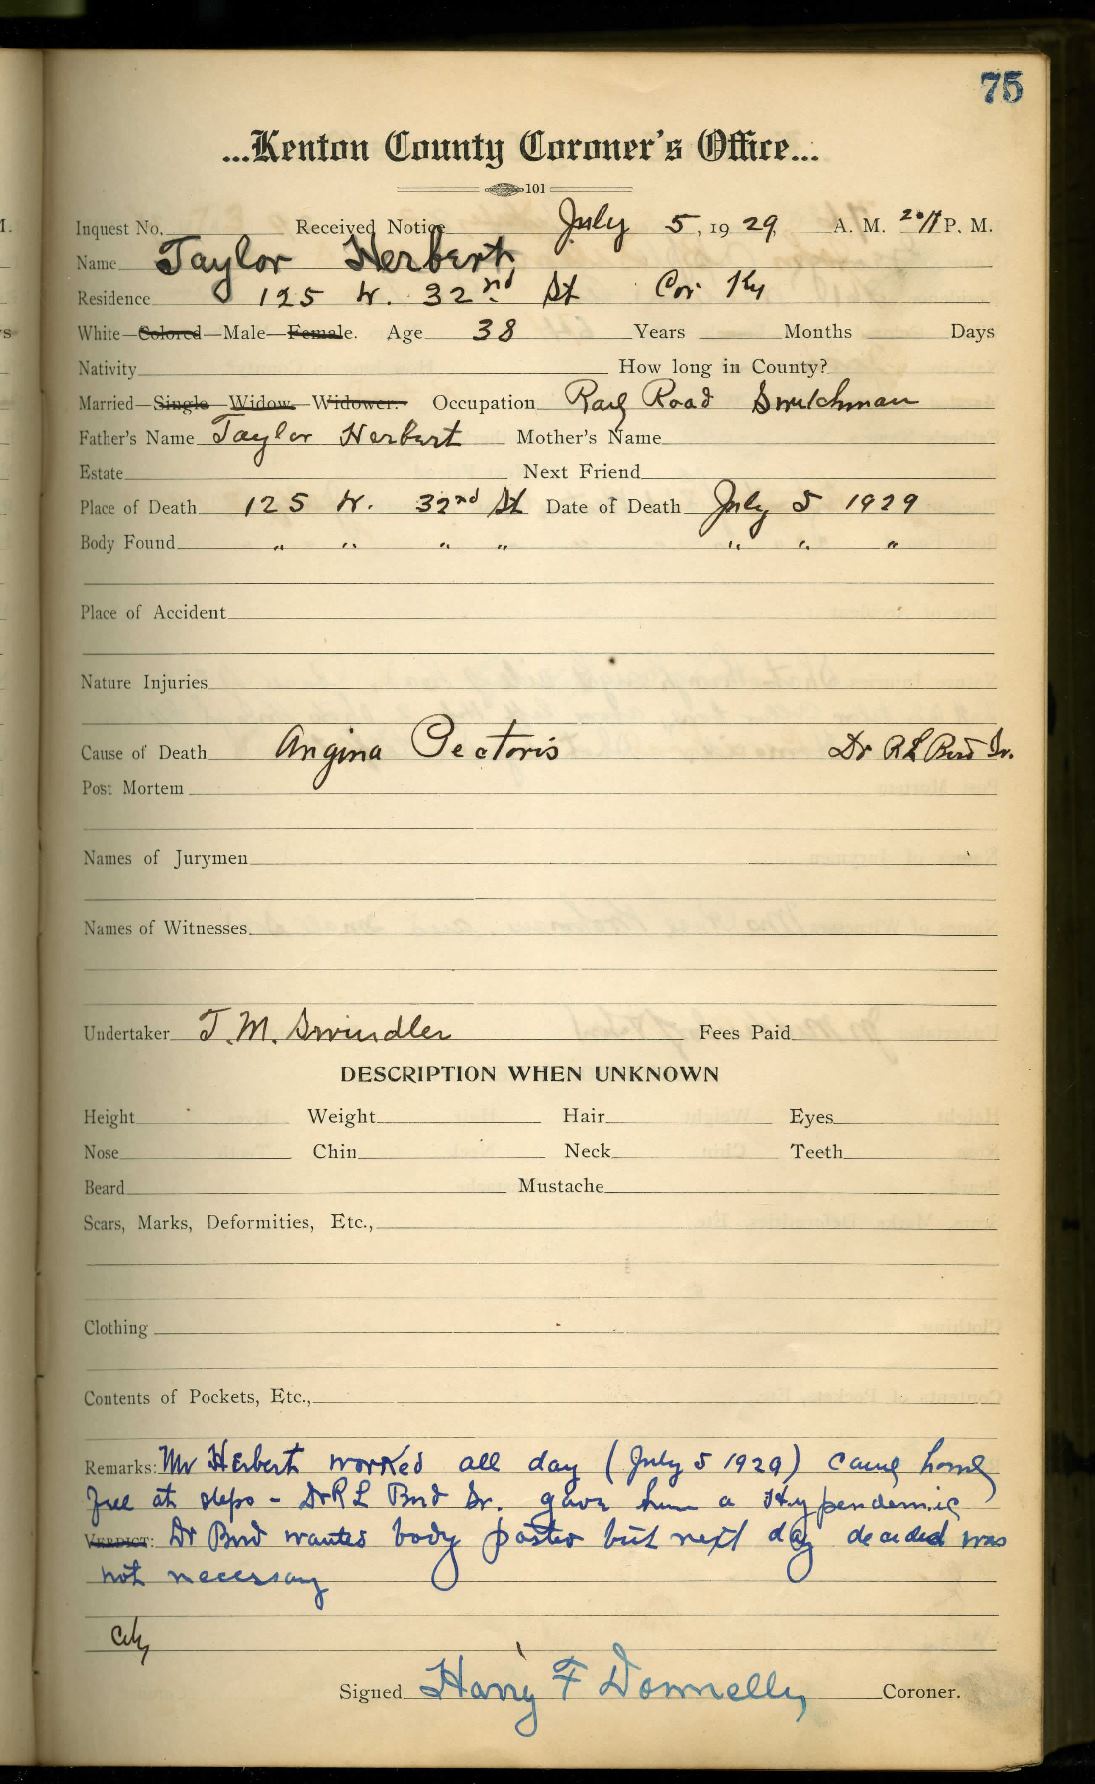 75
...Kenton County Coroner's Office...
101
Inquest No. Received Notice July 5, 1929 A. M. P. M.
Name Taylor Herbert
Residence 125 W. 32nd St Cov Ky
White—Colored—Male—Female. Age 38 Years Months Days
Nativity How long in County?
Married—Single Widow. Widower. Occupation Rail Road Switchman
Father's Name Taylor Herbert Mother's Name
Estate Next Friend
Place of Death 125 W. 32nd St Date of Death July 5 1929
Body Found " " " " " " "
Place of Accident
Nature Injuries
Cause of Death Angina Pectoris Dr R L Bird Sr.
Post Mortem
Names of Jurymen
Names of Witnesses
Undertaker T. M. Swindler Fees Paid
DESCRIPTION WHEN UNKNOWN
Height Weight Hair Eyes
Nose Chin Neck Teeth
Beard Mustache
Scars, Marks, Deformities, Etc.,
Clothing
Contents of Pockets, Etc.,
Remarks: Mr Herbert worked all day (July 5 1929) came home
fell at steps - Dr R L Bird Sr. gave him a Hypendemic
VERDICT: Dr Bird wanted body posted but next day decided was
not necessary
City
Signed Harry F Donnelly Coroner.